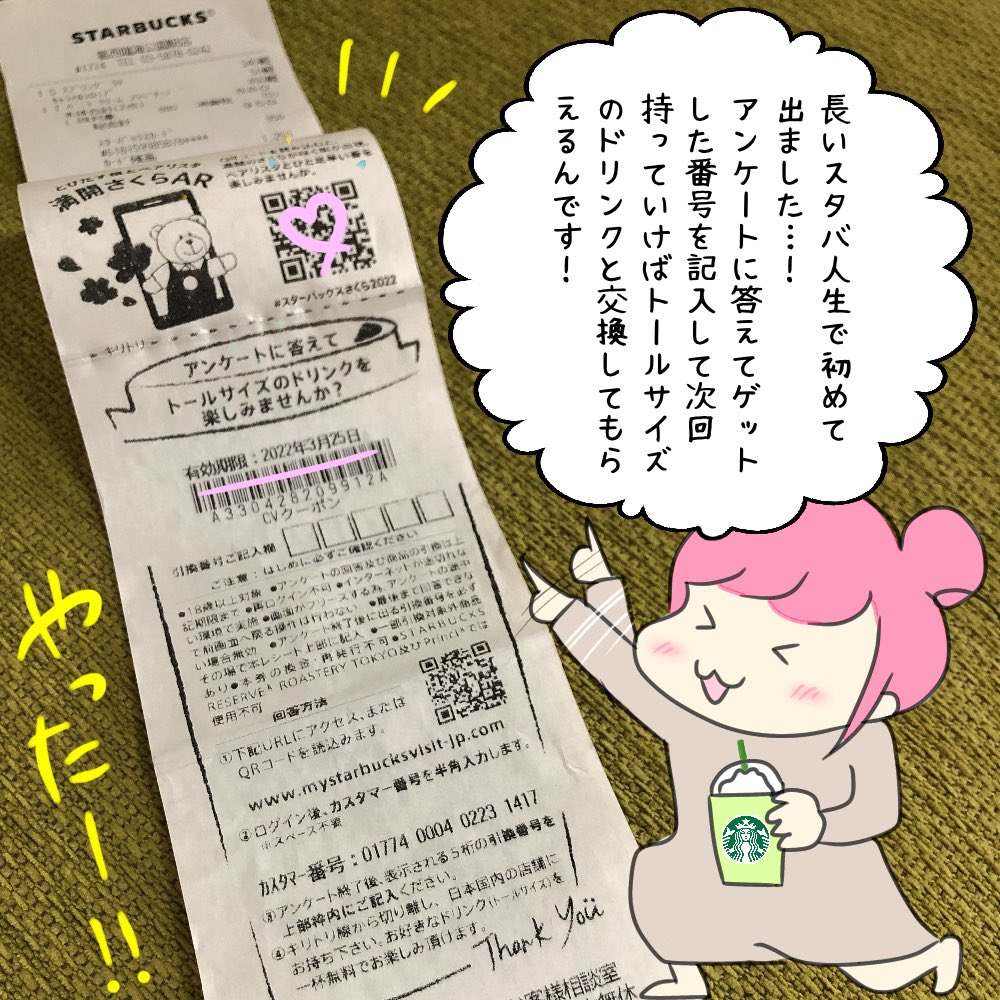 STARBUCKS
長いスタバ人生で初めて
出ました…！
アンケートに答えてゲット
した番号を記入して次回
持っていけばトールサイズ
のドリンクと交換してもら
えるんです！
満開さくらAR
#スターバックスさくら2022
キリトリ
アンケートに答えて
トールサイズのドリンクを
楽しみませんか？
有効期限：2022年3月25日
A330428209912A
CVクーポン
引換番号ご記入欄
ご注意：はじめに必ずご確認ください
●18歳以上対象 ●アンケートの回答及び商品の引換は上
記期限まで ●再ログイン不可 ●インターネットが途切れな
い環境で実施 ●画面がフリーズする為、アンケートの途中
で前画面へ戻る操作は行わない ●最後まで回答できな
い場合無効 ●アンケート終了後に出る引換番号を必ず
その場で本レシート上部に記入 ●一部引換対象外商品
あり ●本券の換金・再発行不可 ●STARBUCKS
RESERVE® ROASTERY TOKYO及びPrinciでは
使用不可
回答方法
①下記URLにアクセス、または
QRコードを読込みます。
www.mystarbucksvisit-jp.com
②ログイン後、カスタマー番号を半角入力します。
※スペース不要
カスタマー番号：01774 0004 0223 1417
③アンケート終了後、表示される5桁の引換番号を
上部枠内にご記入ください。
④キリトリ線から切り離し、日本国内の店舗に
お持ち下さい。お好きなドリンク(トールサイズ)を
一杯無料でお楽しみ頂けます。
Thank You
客様相談室
やったー！！